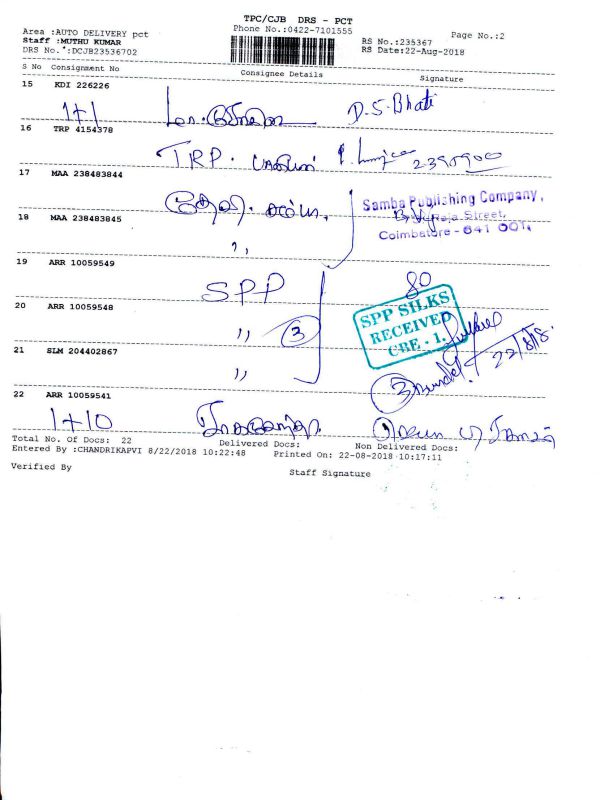 TPC/CJB DRS - PCT
Area :AUTO DELIVERY pct
Phone No.:0422-7101555
Page No.:2
Staff :MUTHU KUMAR
RS No.:235367
DRS No.*:DCJB23536702
RS Date:22-Aug-2018
S No Consignment No Consignee Details Signature
15 KDI 226226
1+1 D.S.Bhati
16 TRP 4154378
TRP.
17 MAA 238483844
Samba Publishing Company,
18 MAA 238483845
Raja Street,
Coimbatore - 641 001.
,,
19 ARR 10059549
SPP 80
SPP SILKS
RECEIVED
CBE - 1.
20 ARR 10059548
,, 3
22/8/18.
21 SLM 204402867
,,
22 ARR 10059541
1+10
Total No. Of Docs: 22 Delivered Docs: Non Delivered Docs:
Entered By :CHANDRIKAPVI 8/22/2018 10:22:48 Printed On: 22-08-2018 10:17:11
Verified By Staff Signature